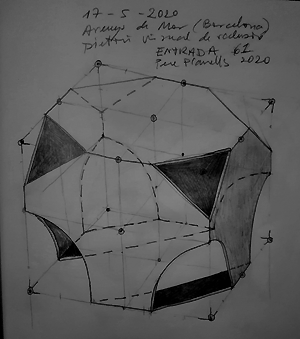 17-5-2020
Arenys de Mar (Barcelona)
Dietari visual de reclusió
ENTRADA 61
Pere Planells 2020